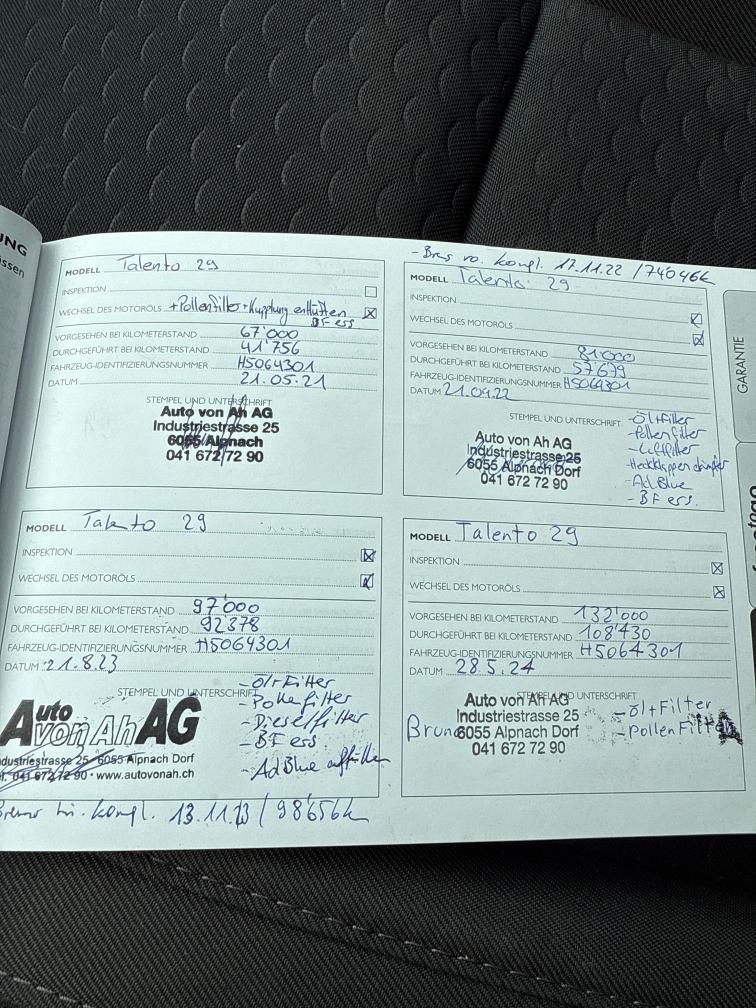 UNG
issen
MODELL Talento 29
INSPEKTION
WECHSEL DES MOTORÖLS +Pollenfilter+Kupplung entlüften
BF ers
VORGESEHEN BEI KILOMETERSTAND 67'000
DURCHGEFÜHRT BEI KILOMETERSTAND 41'756
FAHRZEUG-IDENTIFIZIERUNGSNUMMER H5064301
DATUM 21.05.21
STEMPEL UND UNTERSCHRIFT
Auto von Ah AG
Industriestrasse 25
6055 Alpnach
041 672 72 90
- Brems vo. kompl. 17.11.22 / 74046k
MODELL Talento 29
INSPEKTION
WECHSEL DES MOTORÖLS
VORGESEHEN BEI KILOMETERSTAND 81000
DURCHGEFÜHRT BEI KILOMETERSTAND 57679
FAHRZEUG-IDENTIFIZIERUNGSNUMMER H5064301
DATUM 21.04.22
STEMPEL UND UNTERSCHRIFT
Auto von Ah AG
Industriestrasse 25
6055 Alpnach Dorf
041 672 72 90
- Öl+Filter
- Pollenfilter
- Luftfilter
- Heckklappendämpfer
- AdBlue
- BF ers.
MODELL Talento 29
INSPEKTION
WECHSEL DES MOTORÖLS
VORGESEHEN BEI KILOMETERSTAND 97'000
DURCHGEFÜHRT BEI KILOMETERSTAND 92'378
FAHRZEUG-IDENTIFIZIERUNGSNUMMER H5064301
DATUM 21.8.23
STEMPEL UND UNTERSCHRIFT
Auto von Ah AG
dustriestrasse 25 6055 Alpnach Dorf
041 672 72 90 • www.autovonah.ch
- Öl+Filter
- Pollenfilter
- Dieselfilter
- BF ers
- AdBlue auffüllen
Brems hi. kompl. 13.11.23 / 98'656k
MODELL Talento 29
INSPEKTION
WECHSEL DES MOTORÖLS
VORGESEHEN BEI KILOMETERSTAND 132'000
DURCHGEFÜHRT BEI KILOMETERSTAND 108'430
FAHRZEUG-IDENTIFIZIERUNGSNUMMER H5064301
DATUM 28.5.24
STEMPEL UND UNTERSCHRIFT
Auto von Ah AG
Industriestrasse 25
6055 Alpnach Dorf
041 672 72 90
- Öl+Filter
- Pollen Filter
GARANTIE